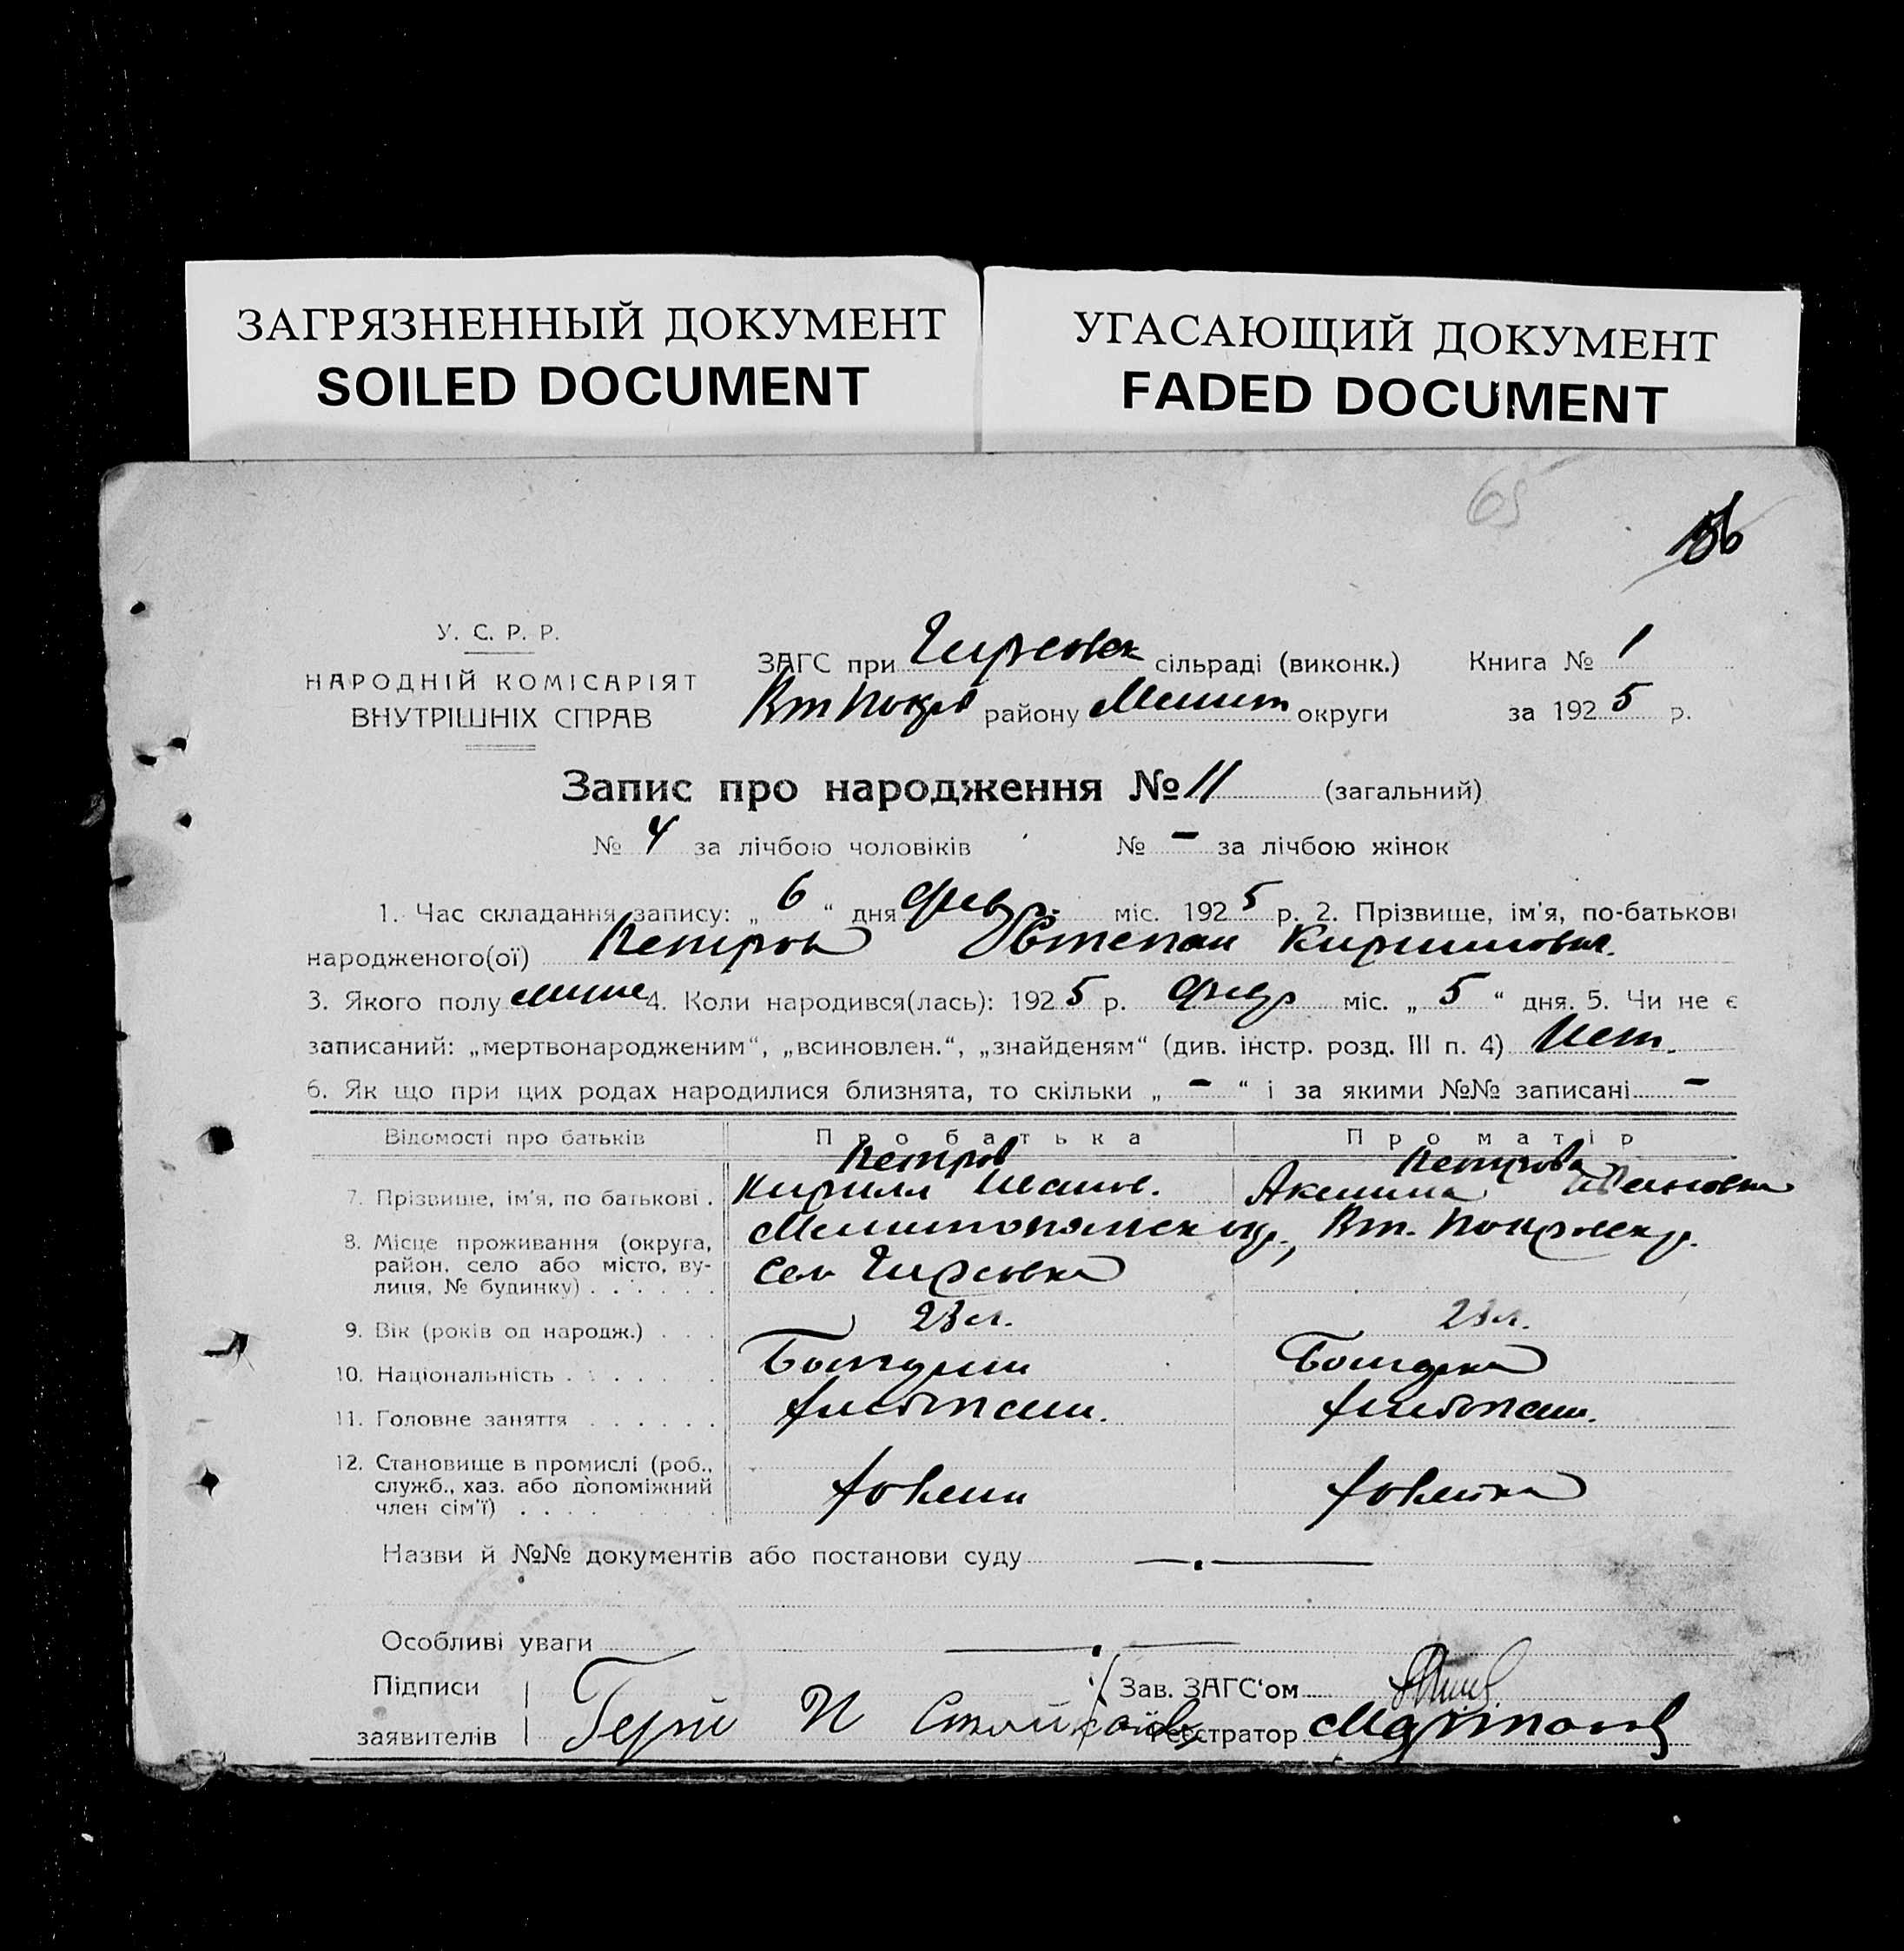 ЗАГРЯЗНЕННЫЙ ДОКУМЕНТ
SOILED DOCUMENT
УГАСАЮЩИЙ ДОКУМЕНТ
FADED DOCUMENT
65
У. С. Р. Р.
НАРОДНІЙ КОМІСАРІЯТ
ВНУТРІШНІХ СПРАВ
ЗАГС при Гирсовск сільраді (виконк.) Книга № 1
Вт Покров району Мелит округи за 1925 р.
Запис про народження № 11 (загальний)
№ 4 за лічбою чоловіків № - за лічбою жінок
1. Час складання запису: „ 6 “ дня февр. міс. 1925 р. 2. Прізвище, ім'я, по-батькові
народженого(ої) Петров Степан Кириллович.
3. Якого полу 4. Коли народився(лась): 1925 р. февр міс. „ 5 “ дня. 5. Чи не є
записаний: „мертвонародженим“, „всиновлен.“, „знайденям“ (див. інстр. розд. III п. 4) Нет.
6. Як що при цих родах народилися близнята, то скільки „ - “ і за якими №№ записані -
Відомості про батьків Про батька Про матір
Петров Петрова
7. Прізвище, ім'я, по батькові . Кирилл Иванов. Аксинья Ивановна
8. Місце проживання (округа, район, село або місто, вулиця, № будинку) . . . . . . Мелитопольск окр., Вт. Покровск р.
Село Гирсовка
9. Вік (років од народж.) . . . 23 л. 23 л.
10. Національність . . . . . . . Болгарин Болгарка
11. Головне заняття . . . . . . Хлебопаш. Хлебопаш.
12. Становище в промислі (роб., служб., хаз. або допоміжний член сім'ї) . . . . Хозяин Хозяйка
Назви й №№ документів або постанови суду
Особливі уваги
Підписи
заявителів
Зав. ЗАГС'ом
Реєстратор